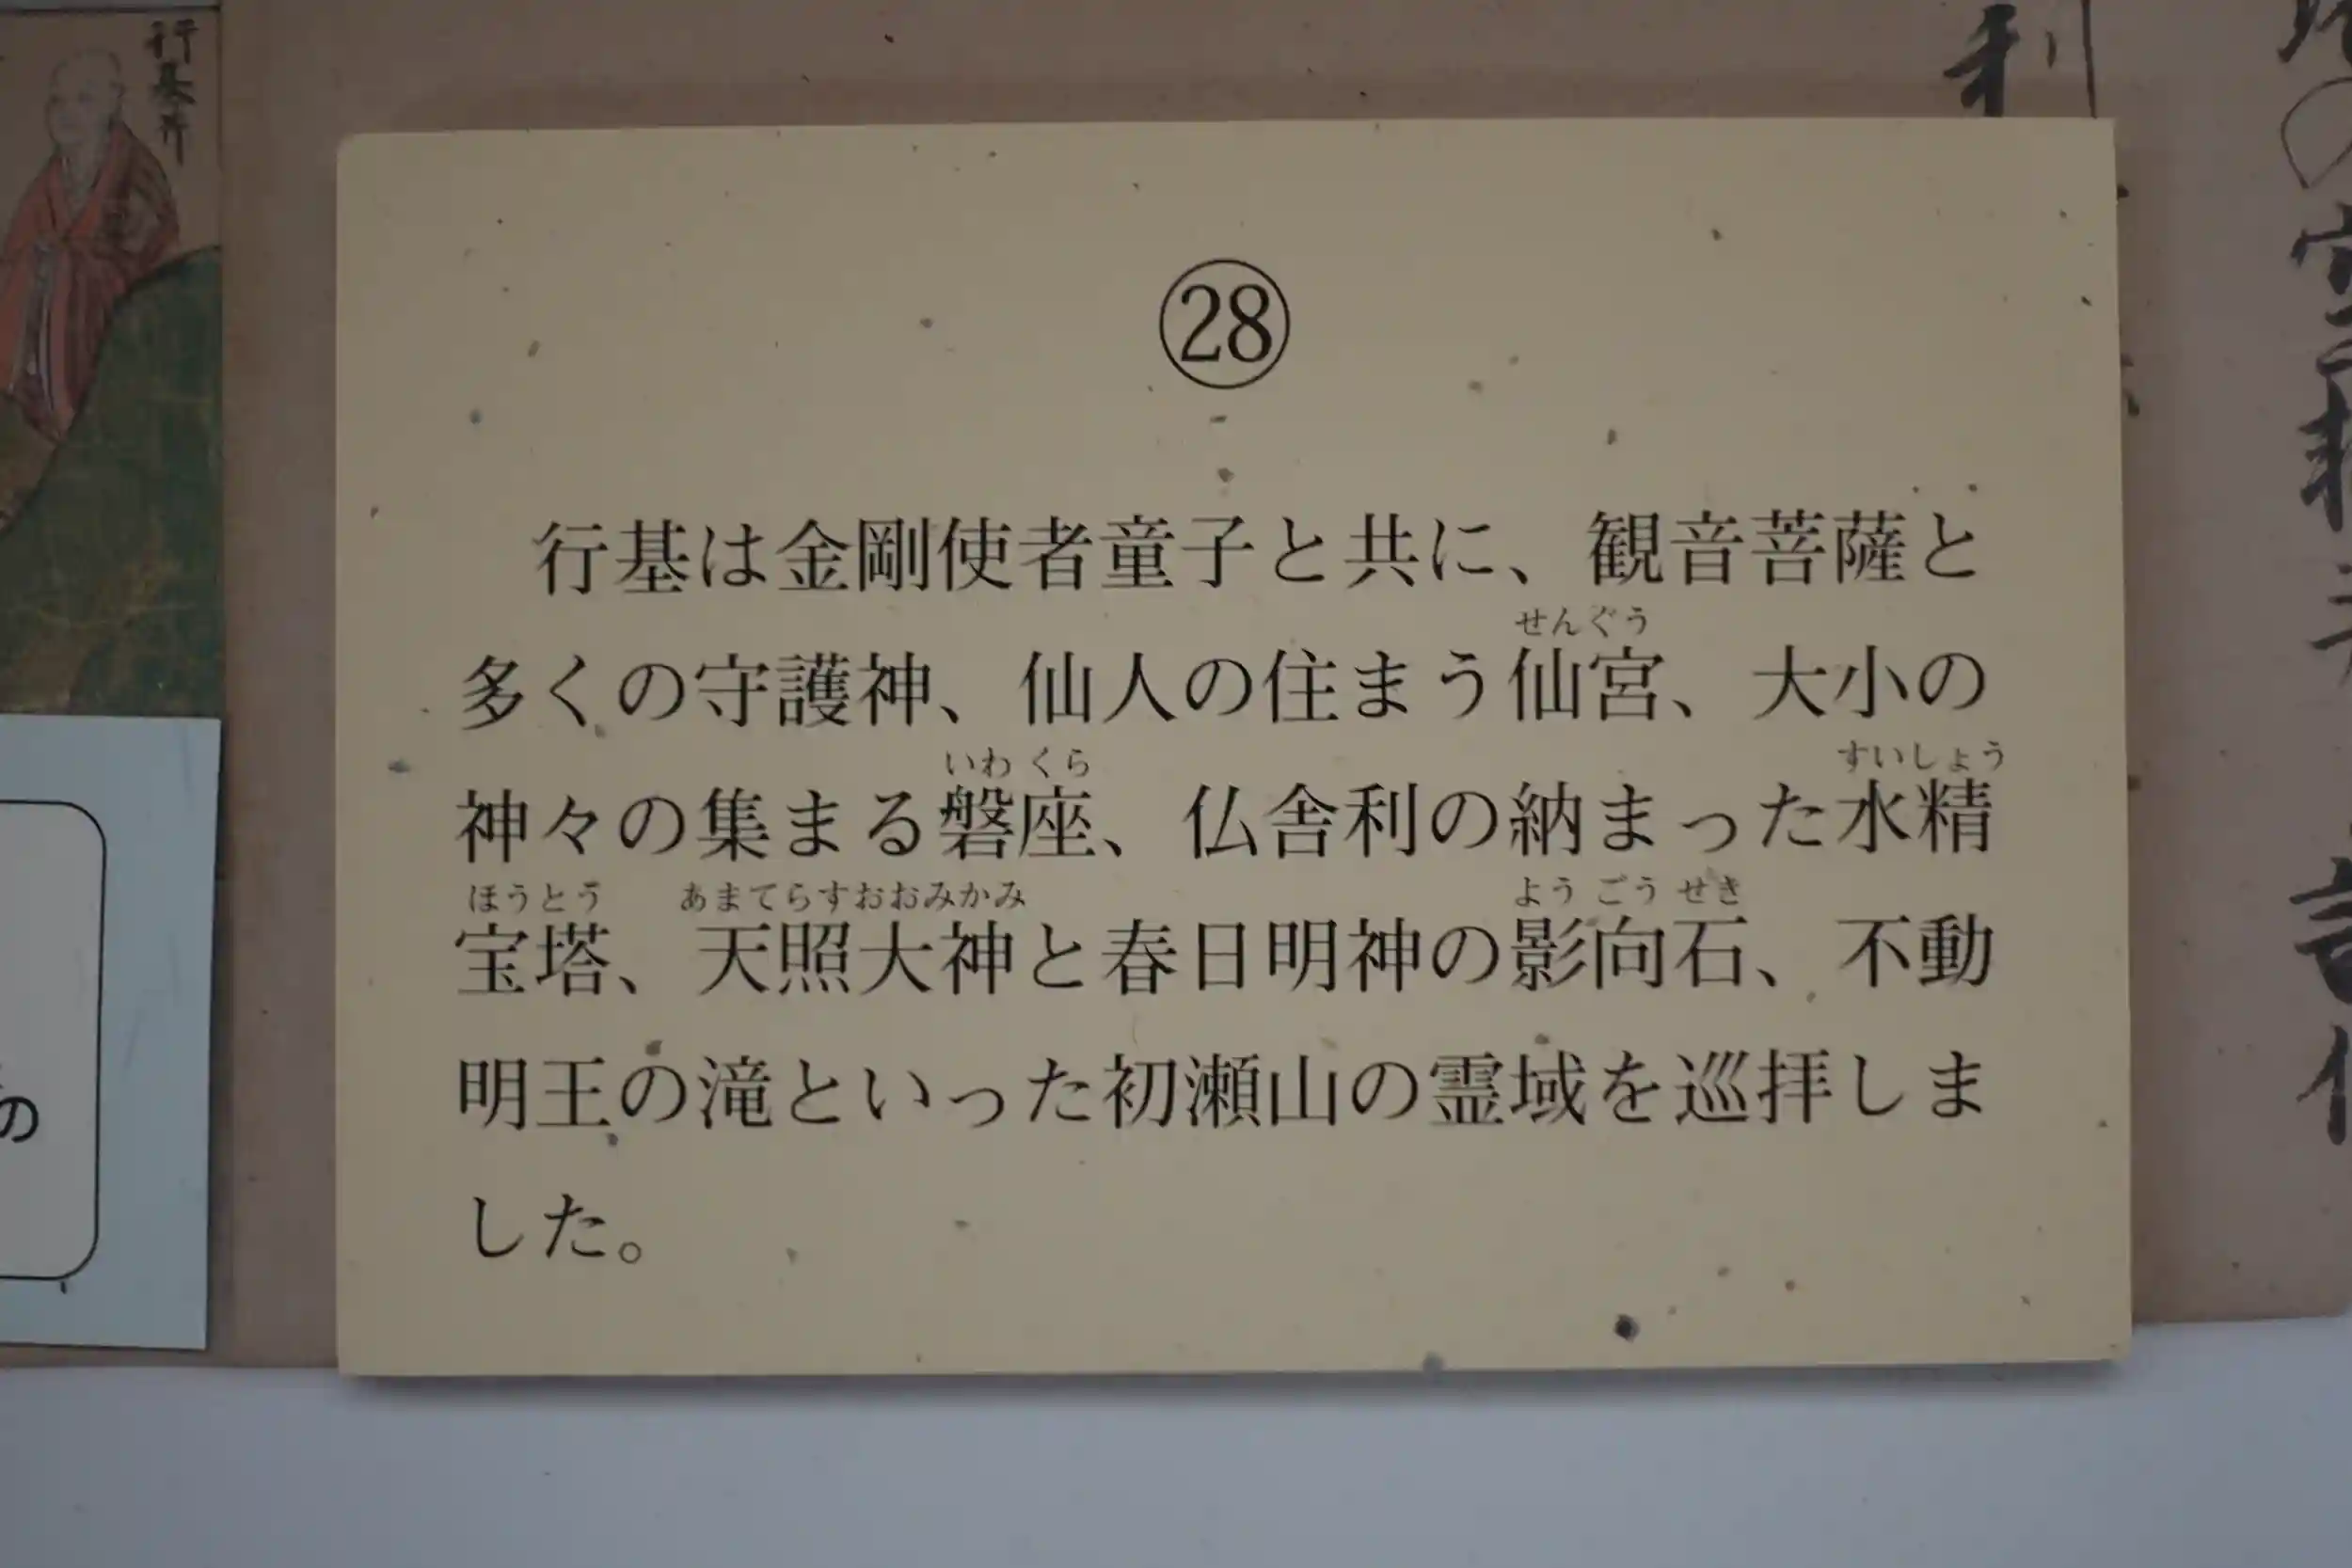 行基菩
㉘
行基は金剛使者童子と共に、観音菩薩と
せんぐう
多くの守護神、仙人の住まう仙宮、大小の
いわくら すいしょう
神々の集まる磐座、仏舎利の納まった水精
ほうとう あまてらすおおみかみ ようごうせき
宝塔、天照大神と春日明神の影向石、不動
明王の滝といった初瀬山の霊域を巡拝しま
した。
の
利